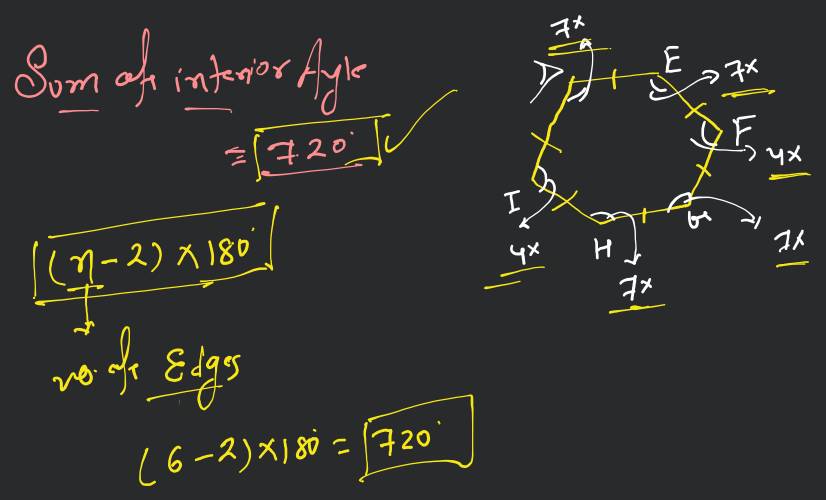 Sum of interior Angle
= 720°
(n-2) × 180°
no. of Edges
(6-2)×180° = 720°
7x
D
E
7x
F
4x
I
G
7x
4x
H
7x